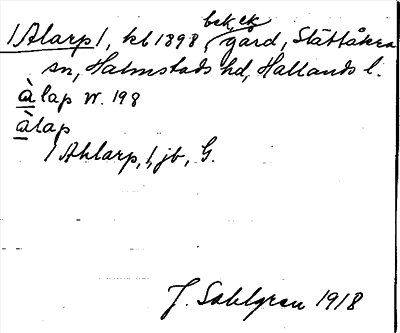 bek, ek
/Alarp/, kb 1898 gård, Slättåkra
sn, Halmstads hd, Hallands l.
àlap W. 198
àlap
/Ahlarp,/, jb, G.
J. Sahlgren 1918